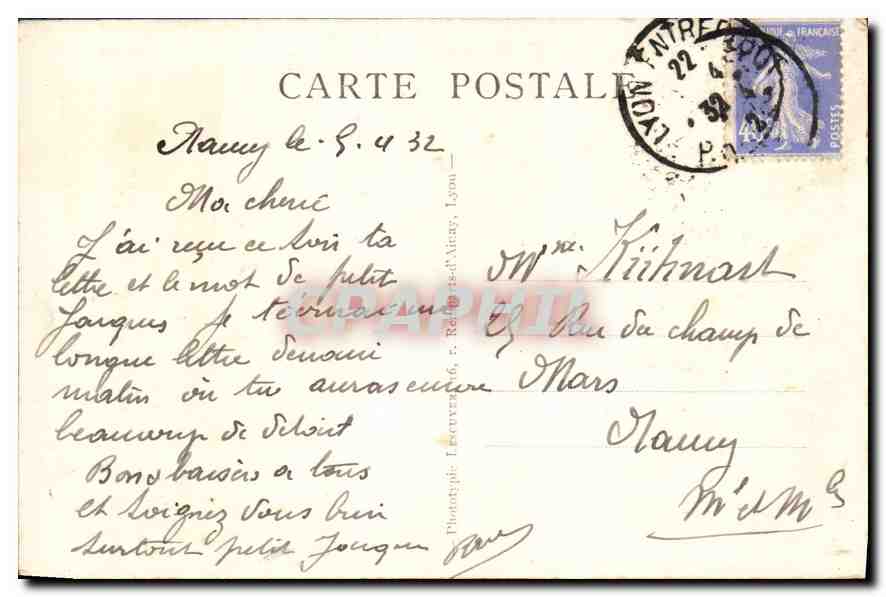 CARTE POSTALE
LYON ENTREPOT
22
4
32
RÉPUBLIQUE FRANÇAISE
POSTES
Nancy le 5 4 32
Ma cherie
J'ai reçu ce soir ta
lettre et le mot de petit
Jacques je t'écrirai une
longue lettre demain
matin où tu auras encore
beaucoup de detail
Bons baisers a tous
et soignez vous bien
surtout petit Jacques
Mme Kühnast
25 Rue du champ de
Mars
Nancy
Mt et Mlle
Phototypie LESCUYER, 16, r. Remparts-d'Ainay, Lyon
CPAPHIL